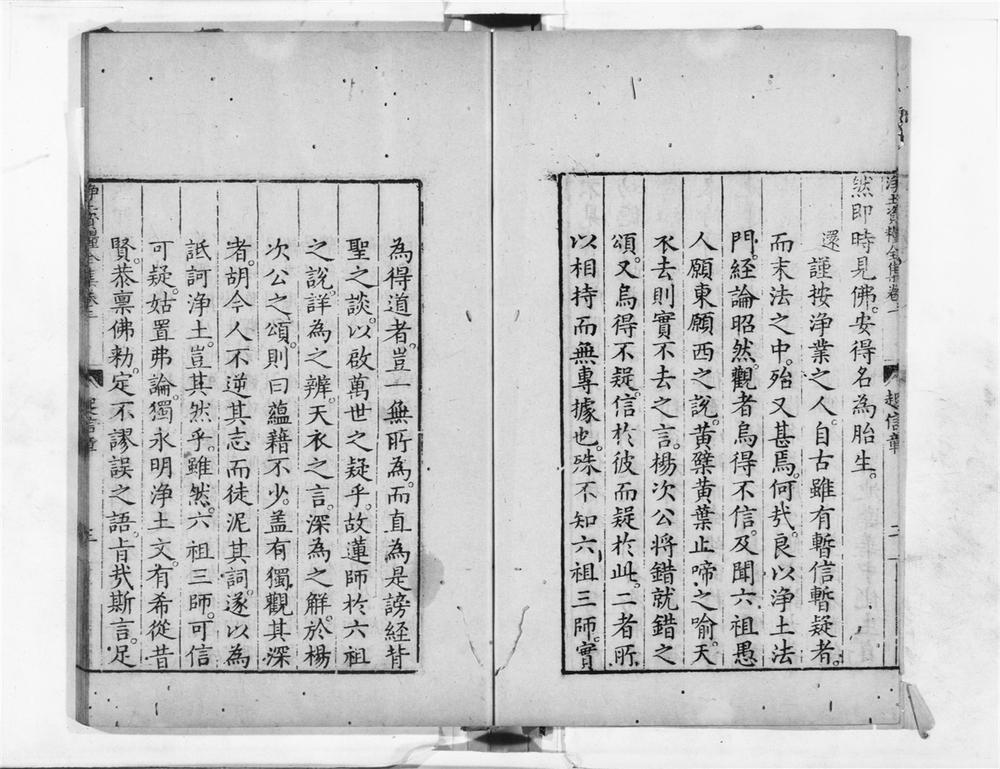 淨土資糧全集卷一
起信章
二
然即時見佛。安得名為胎生。
還
謹按淨業之人。自古雖有暫信暫疑者。
而末法之中。殆又甚焉。何㢤。良以淨土法
門。経論昭然。觀者烏得不信。及聞六祖愚
人願東願西之說。黃蘗黃葉止啼之喻。天
衣去則實不去之言。楊次公將錯就錯之
頌。又烏得不疑。信於彼而疑於此。二者所
以相持而無專據也。殊不知六祖三師。實
為得道者。豈一無所為。而直為是謗經背
聖之談。以啟萬世之疑乎。故蓮師於六祖
之說。詳為之辨。天衣之言。深為之解。於楊
次公之頌。則曰蘊藉不少。盖有獨觀其深
者。胡今人不逆其志而徒泥其詞。遂以為
詆訶淨土。豈其然乎。雖然。六祖三師。可信
可疑。姑置弗論。獨永明淨土文。有希從昔
賢。恭禀佛勑。定不謬誤之語。㫖㢤斯言。足
淨土資糧全集卷一
起信章
三